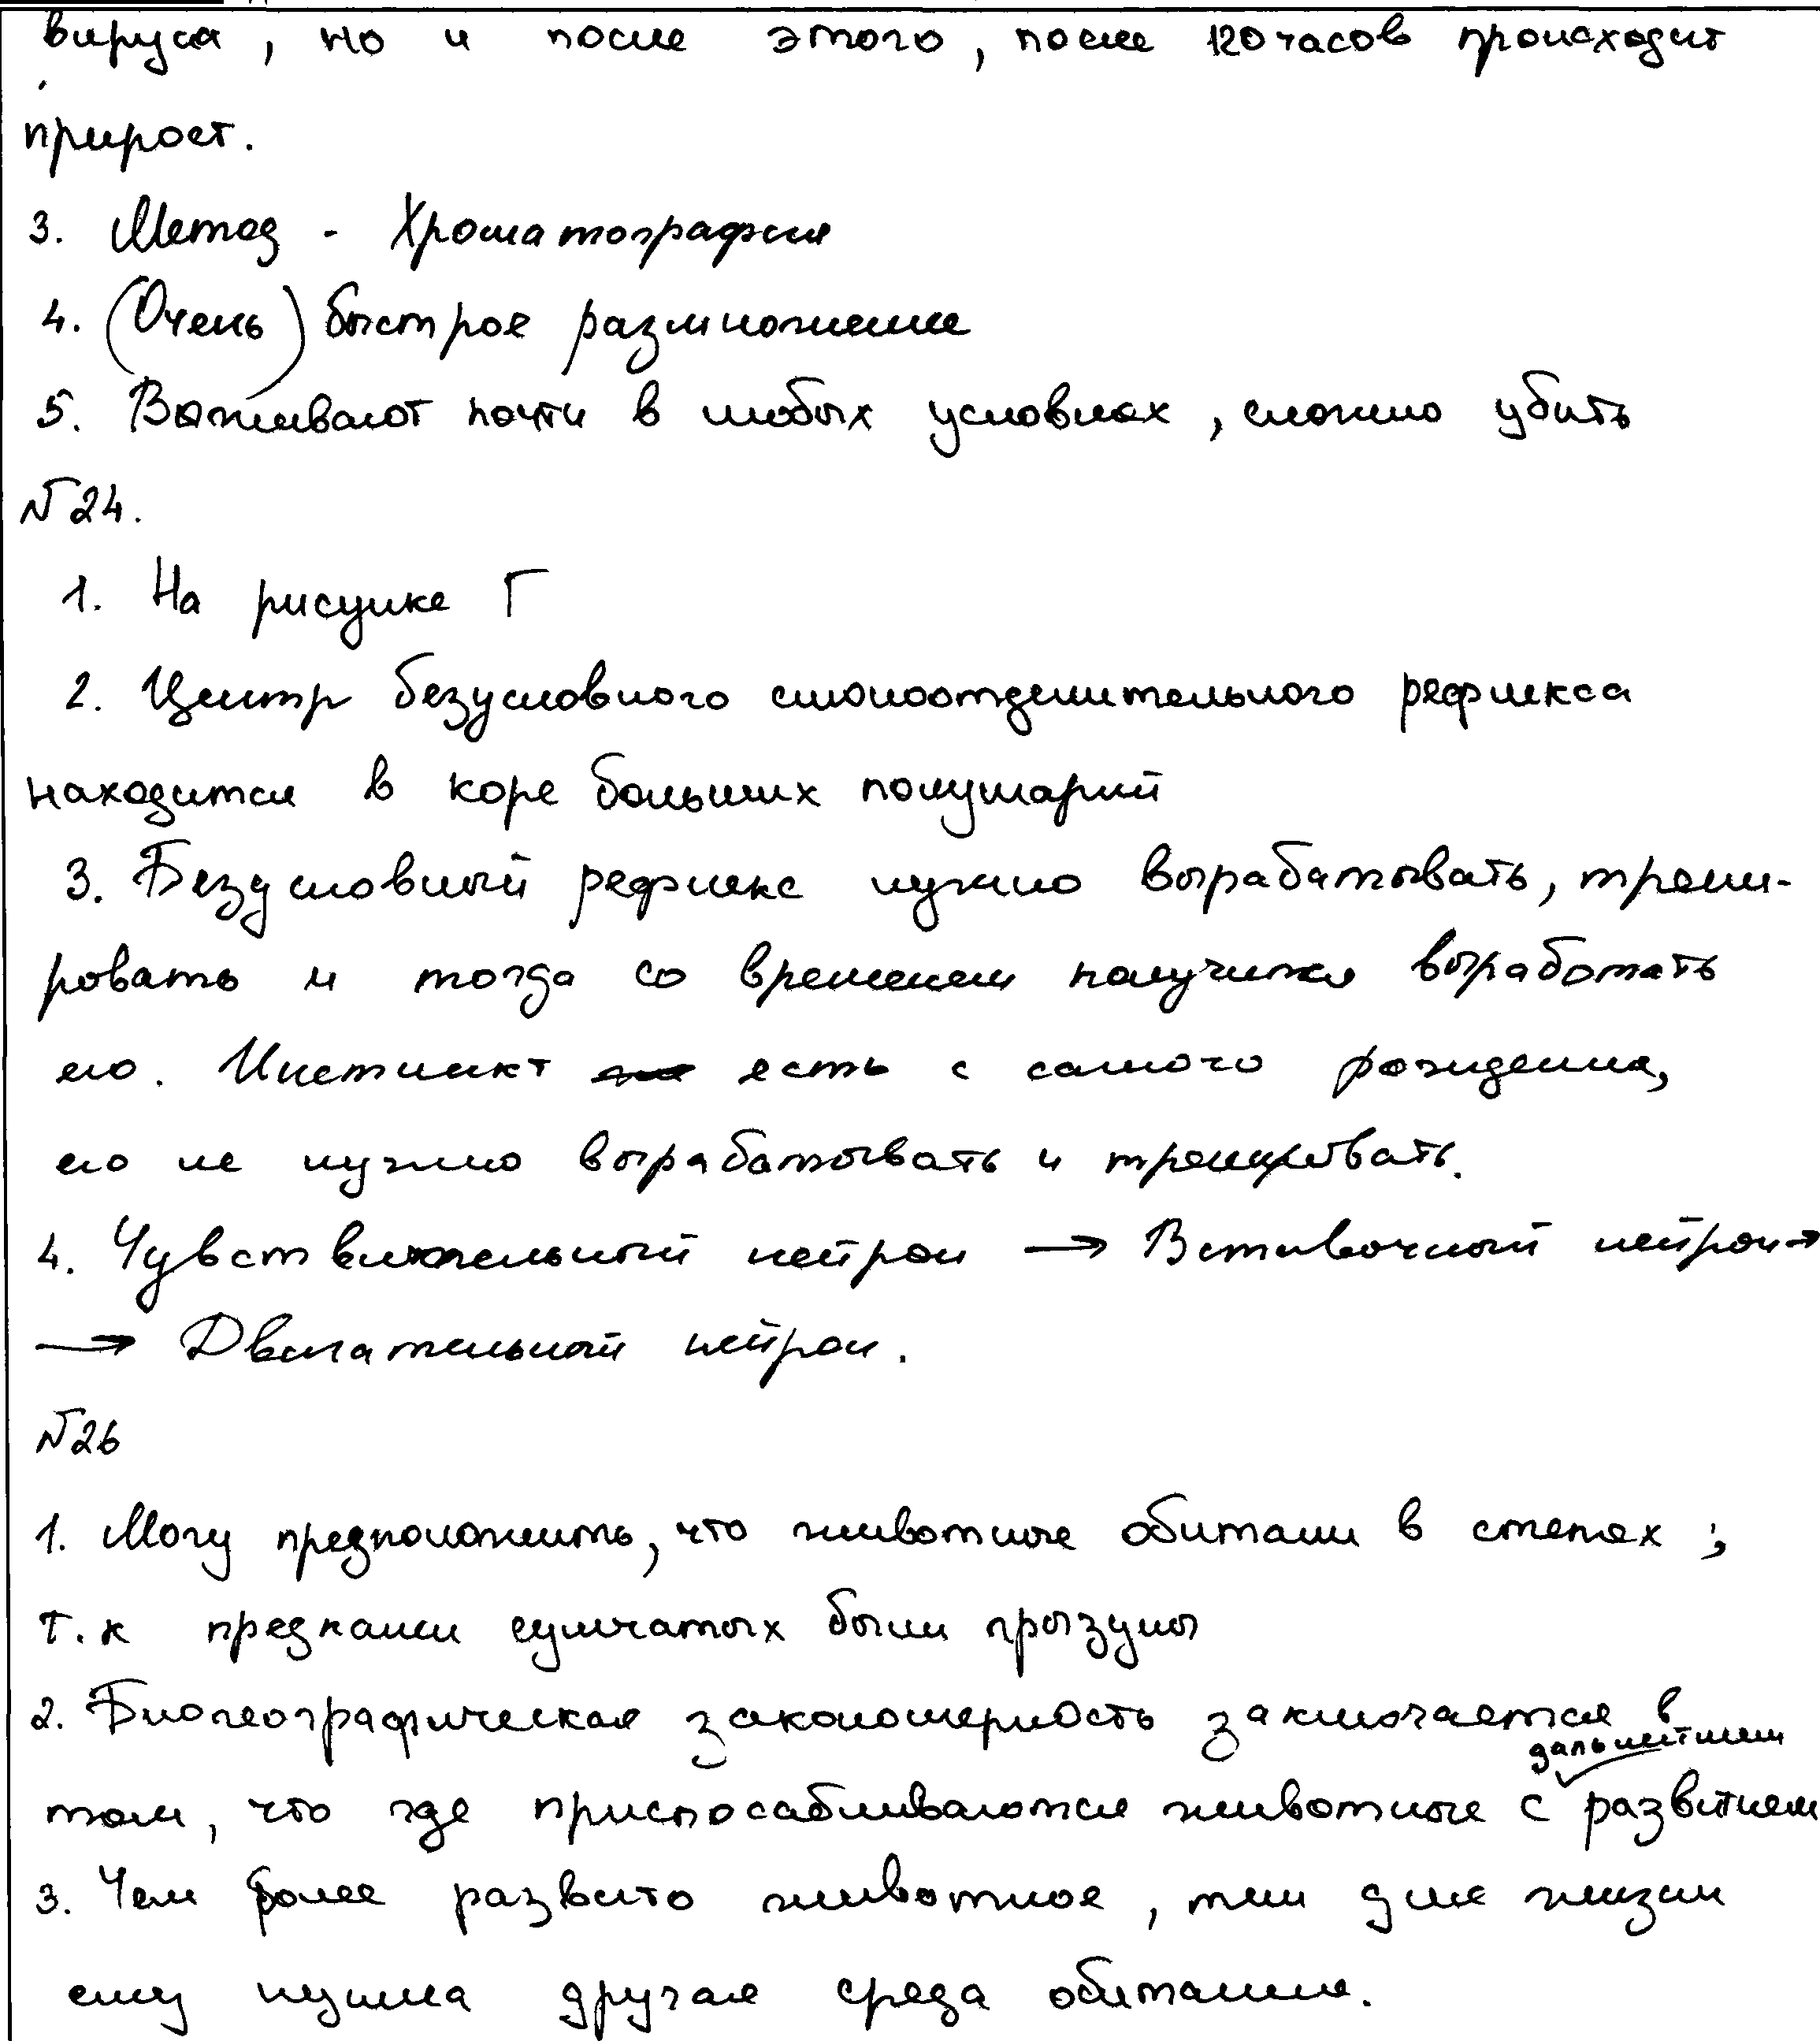 вируса, но и после этого, после 120 часов происходит
прирост.
3. Метод - Хроматография
4. (Очень) быстрое размножение
5. Выживают почти в любых условиях, сложно убить
№24.
1. На рисунке Г
2. Центр безусловного слюноотделительного рефлекса
находится в коре больших полушарий
3. Безусловный рефлекс нужно вырабатывать, трени-
ровать и тогда со временем получится выработать
его. Инстинкт есть с самого рождения,
его не нужно вырабатывать и тренировать.
4. Чувствительный нейрон → Вставочный нейрон →
→ Двигательный нейрон.
№26
1. Могу предположить, что животные обитали в степях;
т.к предками сумчатых были грызуны
2. Биогеографическая закономерность заключается в
том, что где приспосабливаются животные с дальнейшим развитием
3. Чем более развито животное, тем для жизни
ему нужна другая среда обитания.